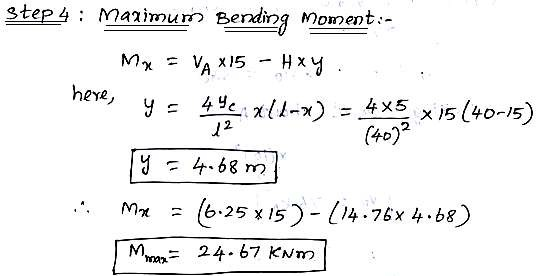 Step 4 : Maximum Bending Moment :-
Mx = VA × 15 - H × y .
here, y = 4yc/l² x(l-x) = 4×5/(40)² × 15 (40-15)
y = 4.68 m
∴ Mx = (6.25 × 15) - (14.76 × 4.68)
Mmax = 24.67 KNm